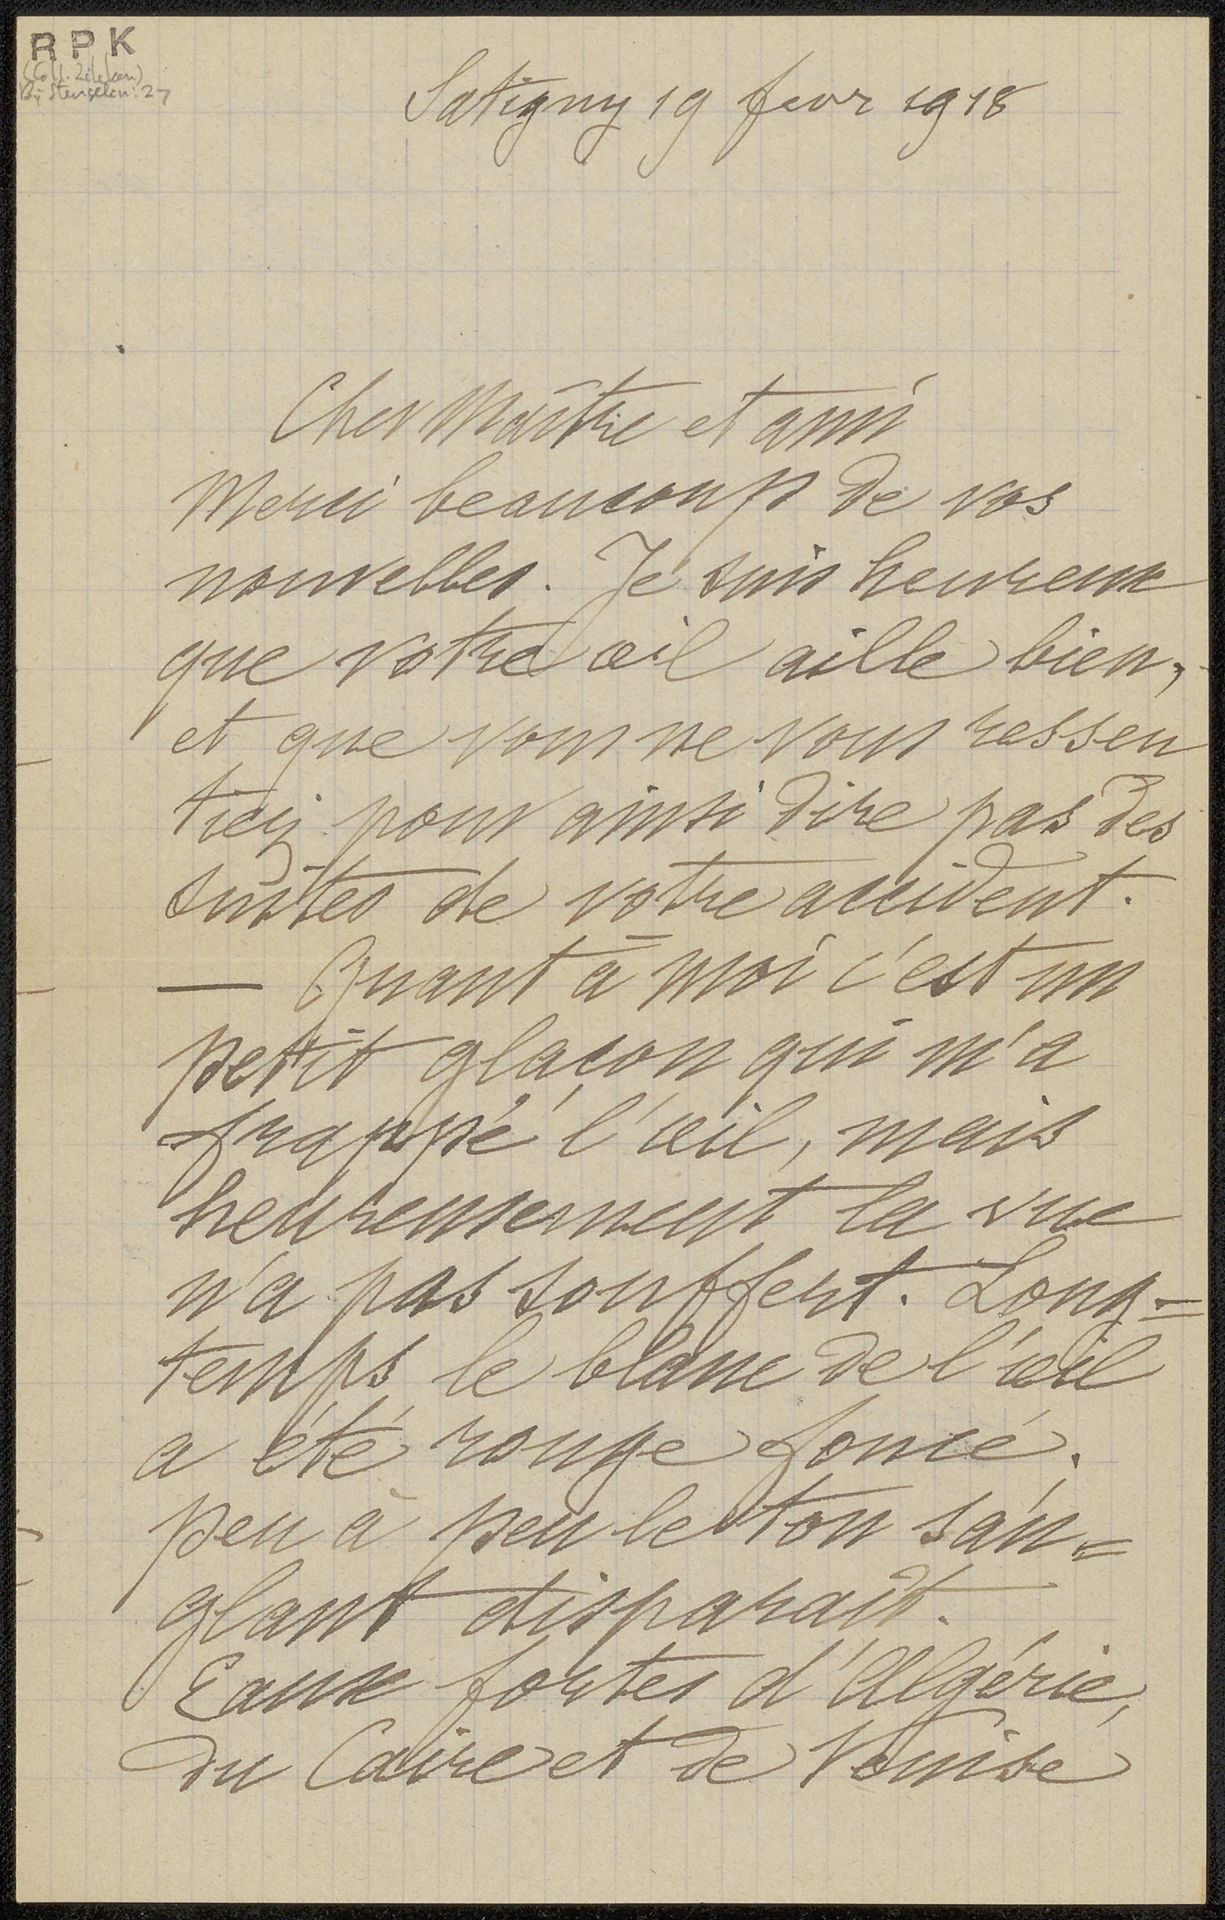 RPK
(Coll. Zilcken)
Bij Stengelin: 27
Satigny 19 fevr 1918
Cher Maître et ami
Merci beaucoup de vos
nouvelles. Je suis heureux
que votre œil aille bien,
et que vous ne vous ressen
tiez pour ainsi dire pas des
suites de votre accident.
— Quant à moi c'est un
petit glaçon qui m'a
frappé l'œil, mais
heureusement la vue
n'a pas souffert. Long=
temps le blanc de l'œil
a été rouge foncé.
peu à peu le ton san=
glant disparait.
Eaux fortes d'Algérie,
du Caire et de Venise